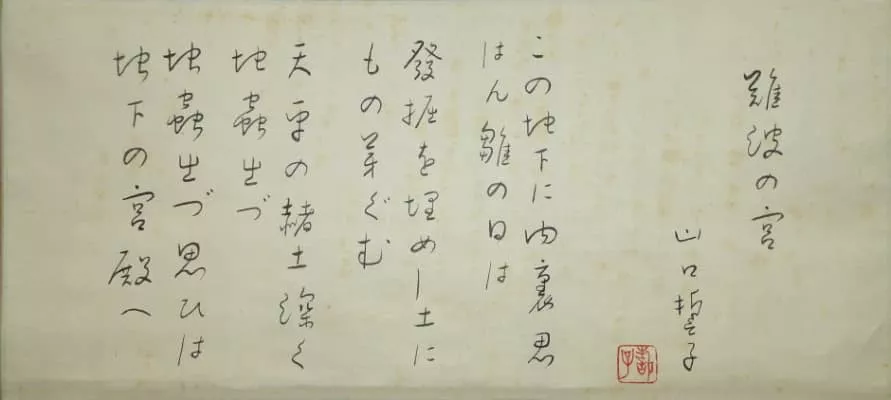 難波の宮
山口誓子
この地下に内裏思
はん雛の日は
發掘を埋めし土に
もの芽ぐむ
天平の赭土深く
地蟲出づ
地蟲出づ思ひは
地下の宮殿へ